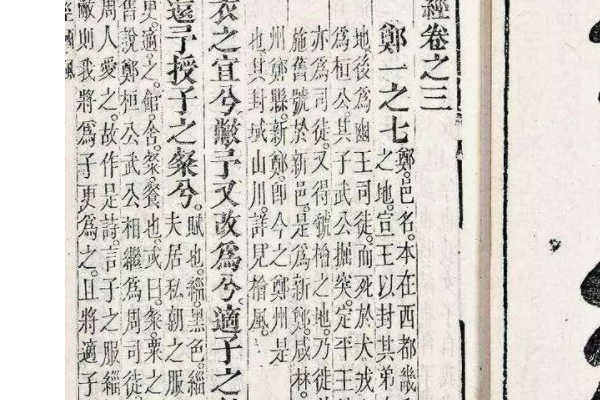 經卷之三
鄭一之七鄭。邑名。本在西都畿
之地。宣王以封其弟
地後爲幽王司徒。而死於犬戎
爲桓公。其子武公掘突。定平王
亦爲司徒。又得虢檜之地。乃徙
施舊號於新邑。是爲新鄭。咸林
州鄭縣。新鄭。卽今之鄭州是
也。其封域山川。詳見檜風。
衣之宜兮。敝予又改爲兮。適子之
還予授子之粲兮。賦也。緇黑色。緇
夫居私朝之服
更。適之。館。舍。粲。餐也。或曰。粲。粟之
舊說鄭桓公武公相繼爲周司徒
周人愛之。故作是詩。言子之服緇
敝則我將爲子更爲之。且將適子